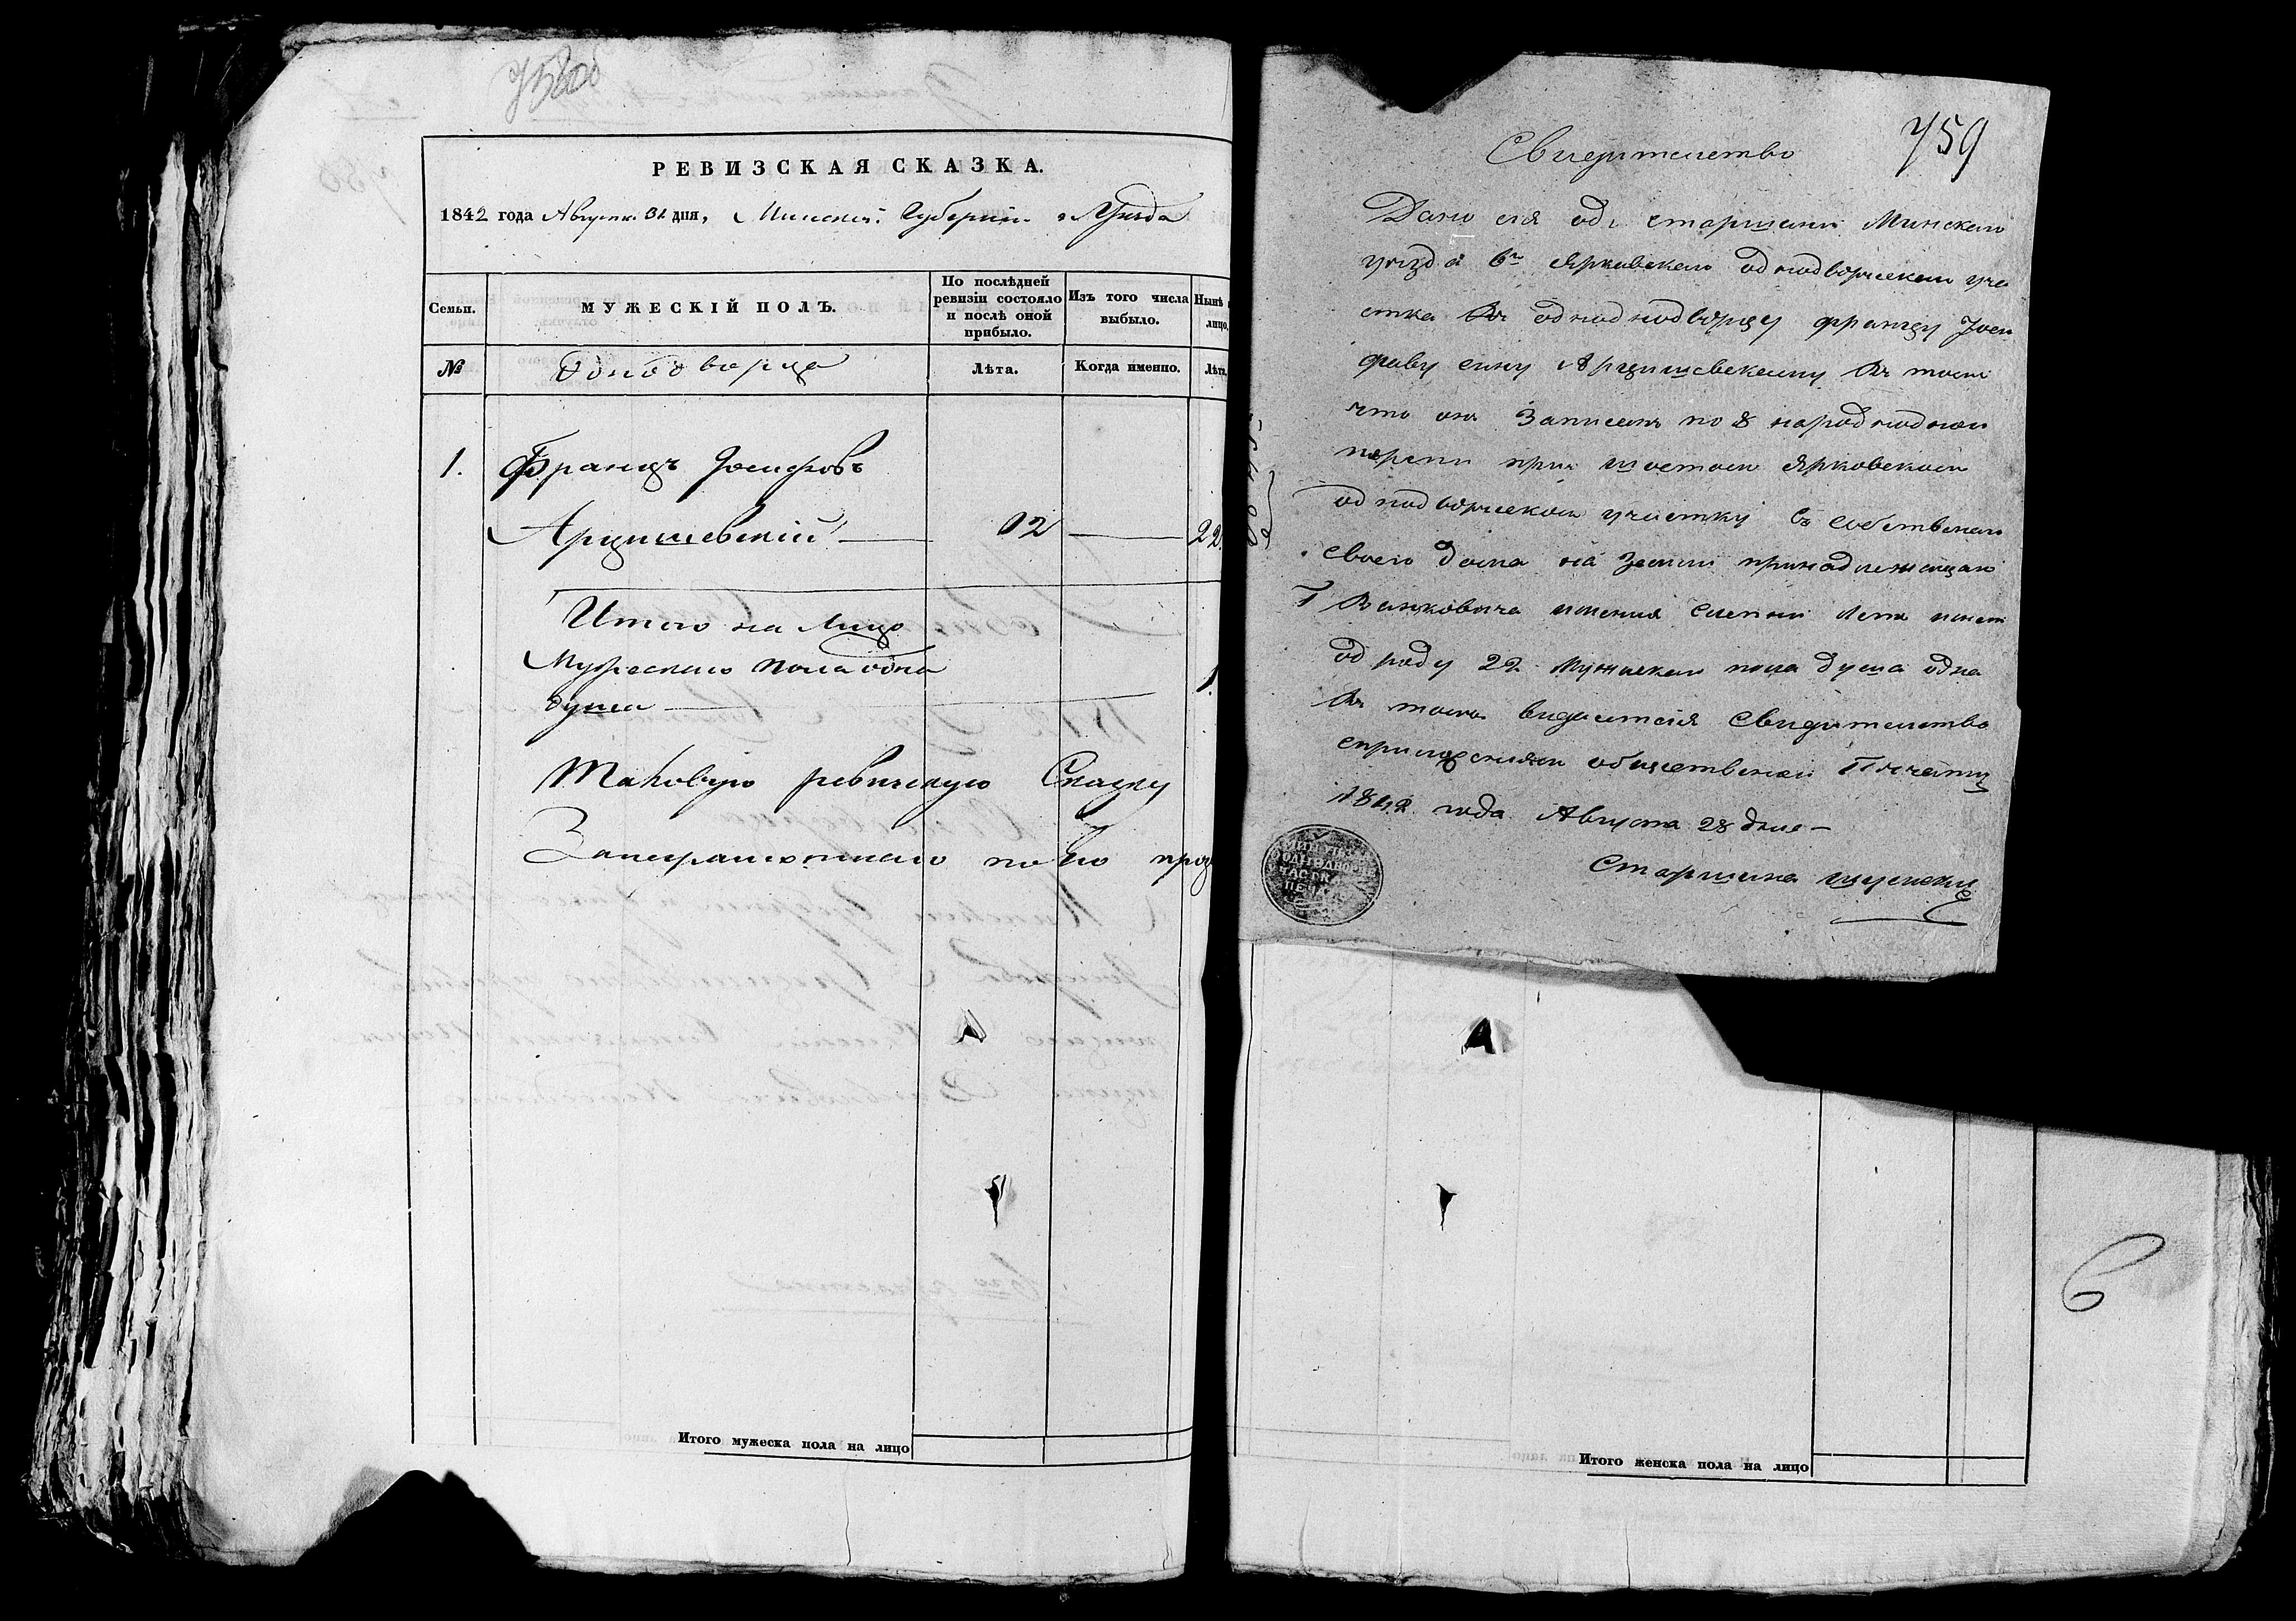 758об
РЕВИЗСКАЯ СКАЗКА.
1842 года Августа 31 дня, Минской Губерніи и Уезда
Семьи.
МУЖЕСКІЙ ПОЛЪ.
По послѣдней ревизіи состояло и послѣ оной прибыло.
Изъ того числа выбыло.
Нынѣ
лицо.
№
Однодворца
Лѣта.
Когда именно.
Лѣта.
1. Францъ Іосифовъ
Арцишевскій — 12 — 22
Итого на лицо
Мужескаго пола одна
душа — 1.
Таковую ревизскую Сказку
за неграмотнаго по его
Итого мужеска пола на лицо
759
Свидителство
Дано сия од старшини Минскаго
уезда 6го Ярковскаго однодворческаго уча
стка однодворцу францу Іоси
фаву сину Арцишевскаму въ томъ
что он Записанъ по 8 народнаднои
переписи при шостом Ярковском
однодворческом участку Съ Собственаго
своего дома на Земли принадлежащаи
Г Ванковича имения Слепни лета имеет
од роду 22 Мужескаго пола душа одна
Въ томъ видается Свидителство
с приложениям общественаи Печати
1842 года Августа 28 дня —
Старшина
6
Итого женска пола на лицо